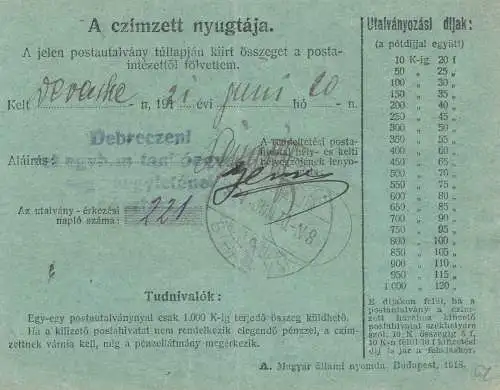 A czimzett nyugtája.
A jelen postautalvány túllapján kiirt összeget a posta-
intézettől fölvettem.
Kelt -n, 191 évi juni hó 20 -n.
Debreczeni
Aláirás:
A rendeltetési posta-
hivatal hely- és kelti
bélyegzőjének lenyo-
Az utalvány-érkezési
napló száma: 221
Tudnivalók:
Egy-egy postautalványnyal csak 1.000 K-ig terjedő összeg küldhető.
Ha a kifizető postahivatal nem rendelkezik elegendő pénzzel, a czim-
zettnek várnia kell, mig a pénzellátmány megérkezik.
Utalványozási díjak:
(a pótdíjjal együtt)
10 K-ig 20 f
50 „ 25 „
100 „ 30 „
150 „ 35 „
200 „ 40 „
250 „ 45 „
300 „ 50 „
350 „ 55 „
400 „ 60 „
450 „ 65 „
500 „ 70 „
550 „ 75 „
600 „ 80 „
650 „ 85 „
700 „ 90 „
750 „ 95 „
800 „ 100 „
850 „ 105 „
900 „ 110 „
950 „ 115 „
1.000 „ 120 „
E díjakon felül, ha a
postautalvány a czim-
zett házához kifizető
postahivatal székhelyére
szól, 10 K összegig 5 f,
10 K-n felül 10 f kifizetési
díj is jár a feladáskor.
A. Magyar állami nyomda. Budapest, 1918.